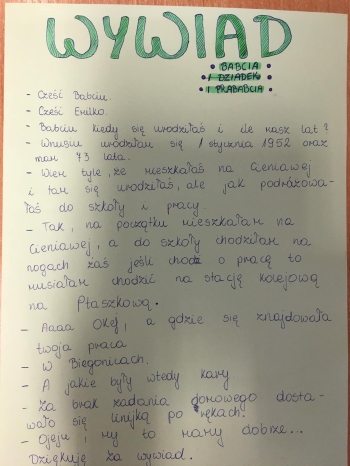 WYWIAD
• BABCIA
• I DZIADEK •
• I PRABABCIA •
- Cześć Babciu.
- Cześć Emilko.
- Babciu kiedy się urodziłaś i ile masz lat?
- Wnusiu urodziłam się 1 stycznia 1952 oraz
mam 73 lata.
- Wiem tyle, że mieszkałaś na Cieniawej
i tam się urodziłaś, ale jak podróżowa-
łaś do szkoły i pracy.
- Tak, na początku mieszkałam na
Cieniawej, a do szkoły chodziłam na
nogach zaś jeśli chodz o pracę to
musiałam chodzić na stację kolejową
na Ptaszkową.
- Aaaa Okej, a gdzie się znajdowała
twoja praca
- W Biegonicach.
- A jakie były wtedy kary
- Za brak zadania domowego dosta-
wało się linijką po rękach.
- Ojeju, my to mamy dobrze...
Dziękuję za wywiad.